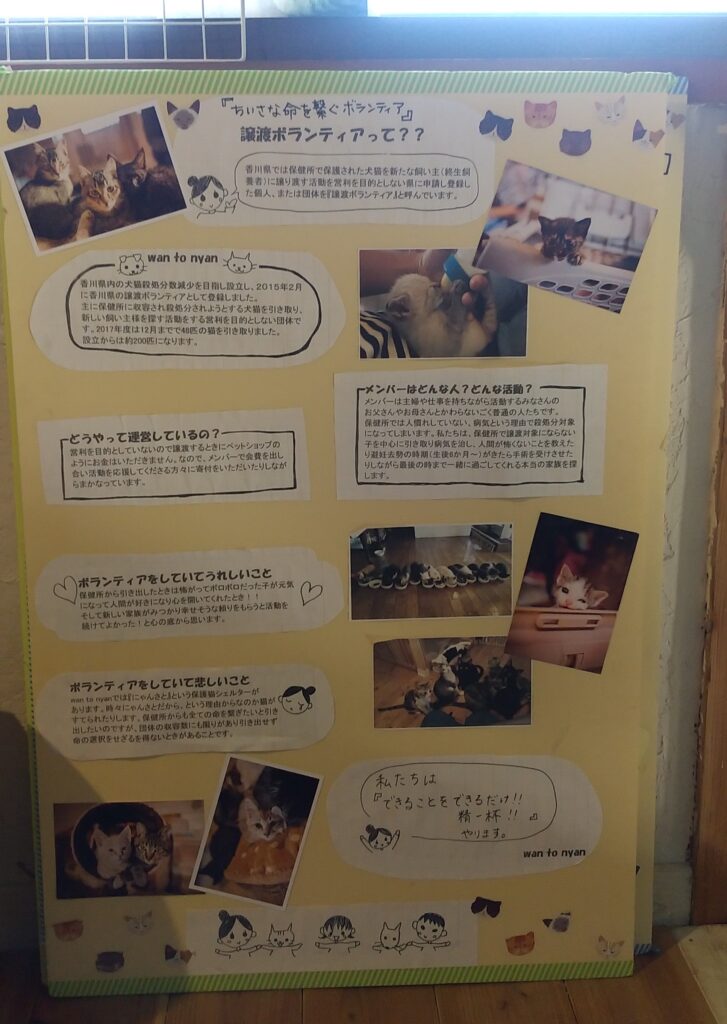 『ちいさな命を繋ぐボランティア』
譲渡ボランティアって??
香川県では保健所で保護された犬猫を新たな飼い主(終生飼
養者)に譲り渡す活動を営利を目的としない県に申請し登録し
た個人、または団体を『譲渡ボランティア』と呼んでいます。
wan to nyan
香川県内の犬猫殺処分数減少を目指し設立し、2015年2月
に香川県の譲渡ボランティアとして登録しました。
主に保健所に収容され殺処分されようとする犬猫を引き取り、
新しい飼い主様を探す活動をする営利を目的としない団体で
す。2017年度は12月までで46匹の猫を引き取りました。
設立からは約200匹になります。
メンバーはどんな人?どんな活動?
メンバーは主婦や仕事を持ちながら活動するみなさんの
お父さんやお母さんとかわらないごく普通の人たちです。
保健所では人慣れしていない、病気という理由で殺処分対象
になってしまいます。私たちは、保健所で譲渡対象にならない
子を中心に引き取り病気を治し、人間が怖くないことを教えた
り避妊去勢の時期(生後6か月~)がきたら手術を受けさせた
りしながら最後の時まで一緒に過ごしてくれる本当の家族を探
します。
どうやって運営しているの?
営利を目的としていないので譲渡するときにペットショップの
ようにお金はいただきません。なので、メンバーで会費を出し
合い活動を応援してくださる方々に寄付をいただいたりしなが
らまかなっています。
ボランティアをしていてうれしいこと
保健所から引き出したときは怖がってボロボロだった子が元気
になって人間が好きになり心を開いてくれたとき!!
そして新しい家族がみつかり幸せそうな頼りをもらうと活動を
続けてよかった!と心の底から思います。
ボランティアをしていて悲しいこと
wan to nyanでは『にゃんさと』という保護猫シェルターが
あります。時々にゃんさとだから、という理由からなのか猫が
すてられたりします。保健所からも全ての命を繋ぎたいと引き
出したいのですが、団体の収容数にも限りがあり引き出せず
命の選択をせざるを得ないときがあることです。
私たちは
『できることをできるだけ!!
精一杯!!』
やります。
wan to nyan